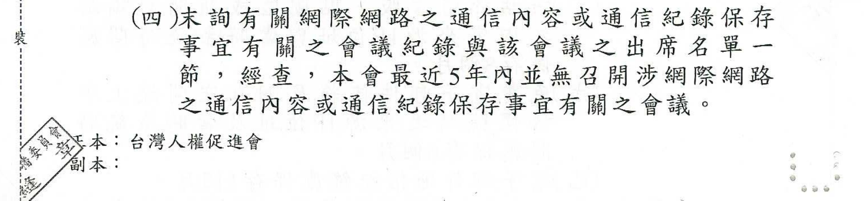 (四)末詢有關網際網路之通信內容或通信紀錄保存
事宜有關之會議紀錄與該會議之出席名單一
節，經查，本會最近5年內並無召開涉網際網路
之通信內容或通信紀錄保存事宜有關之會議。
裝
正本：台灣人權促進會
副本：
播委員會
縫章